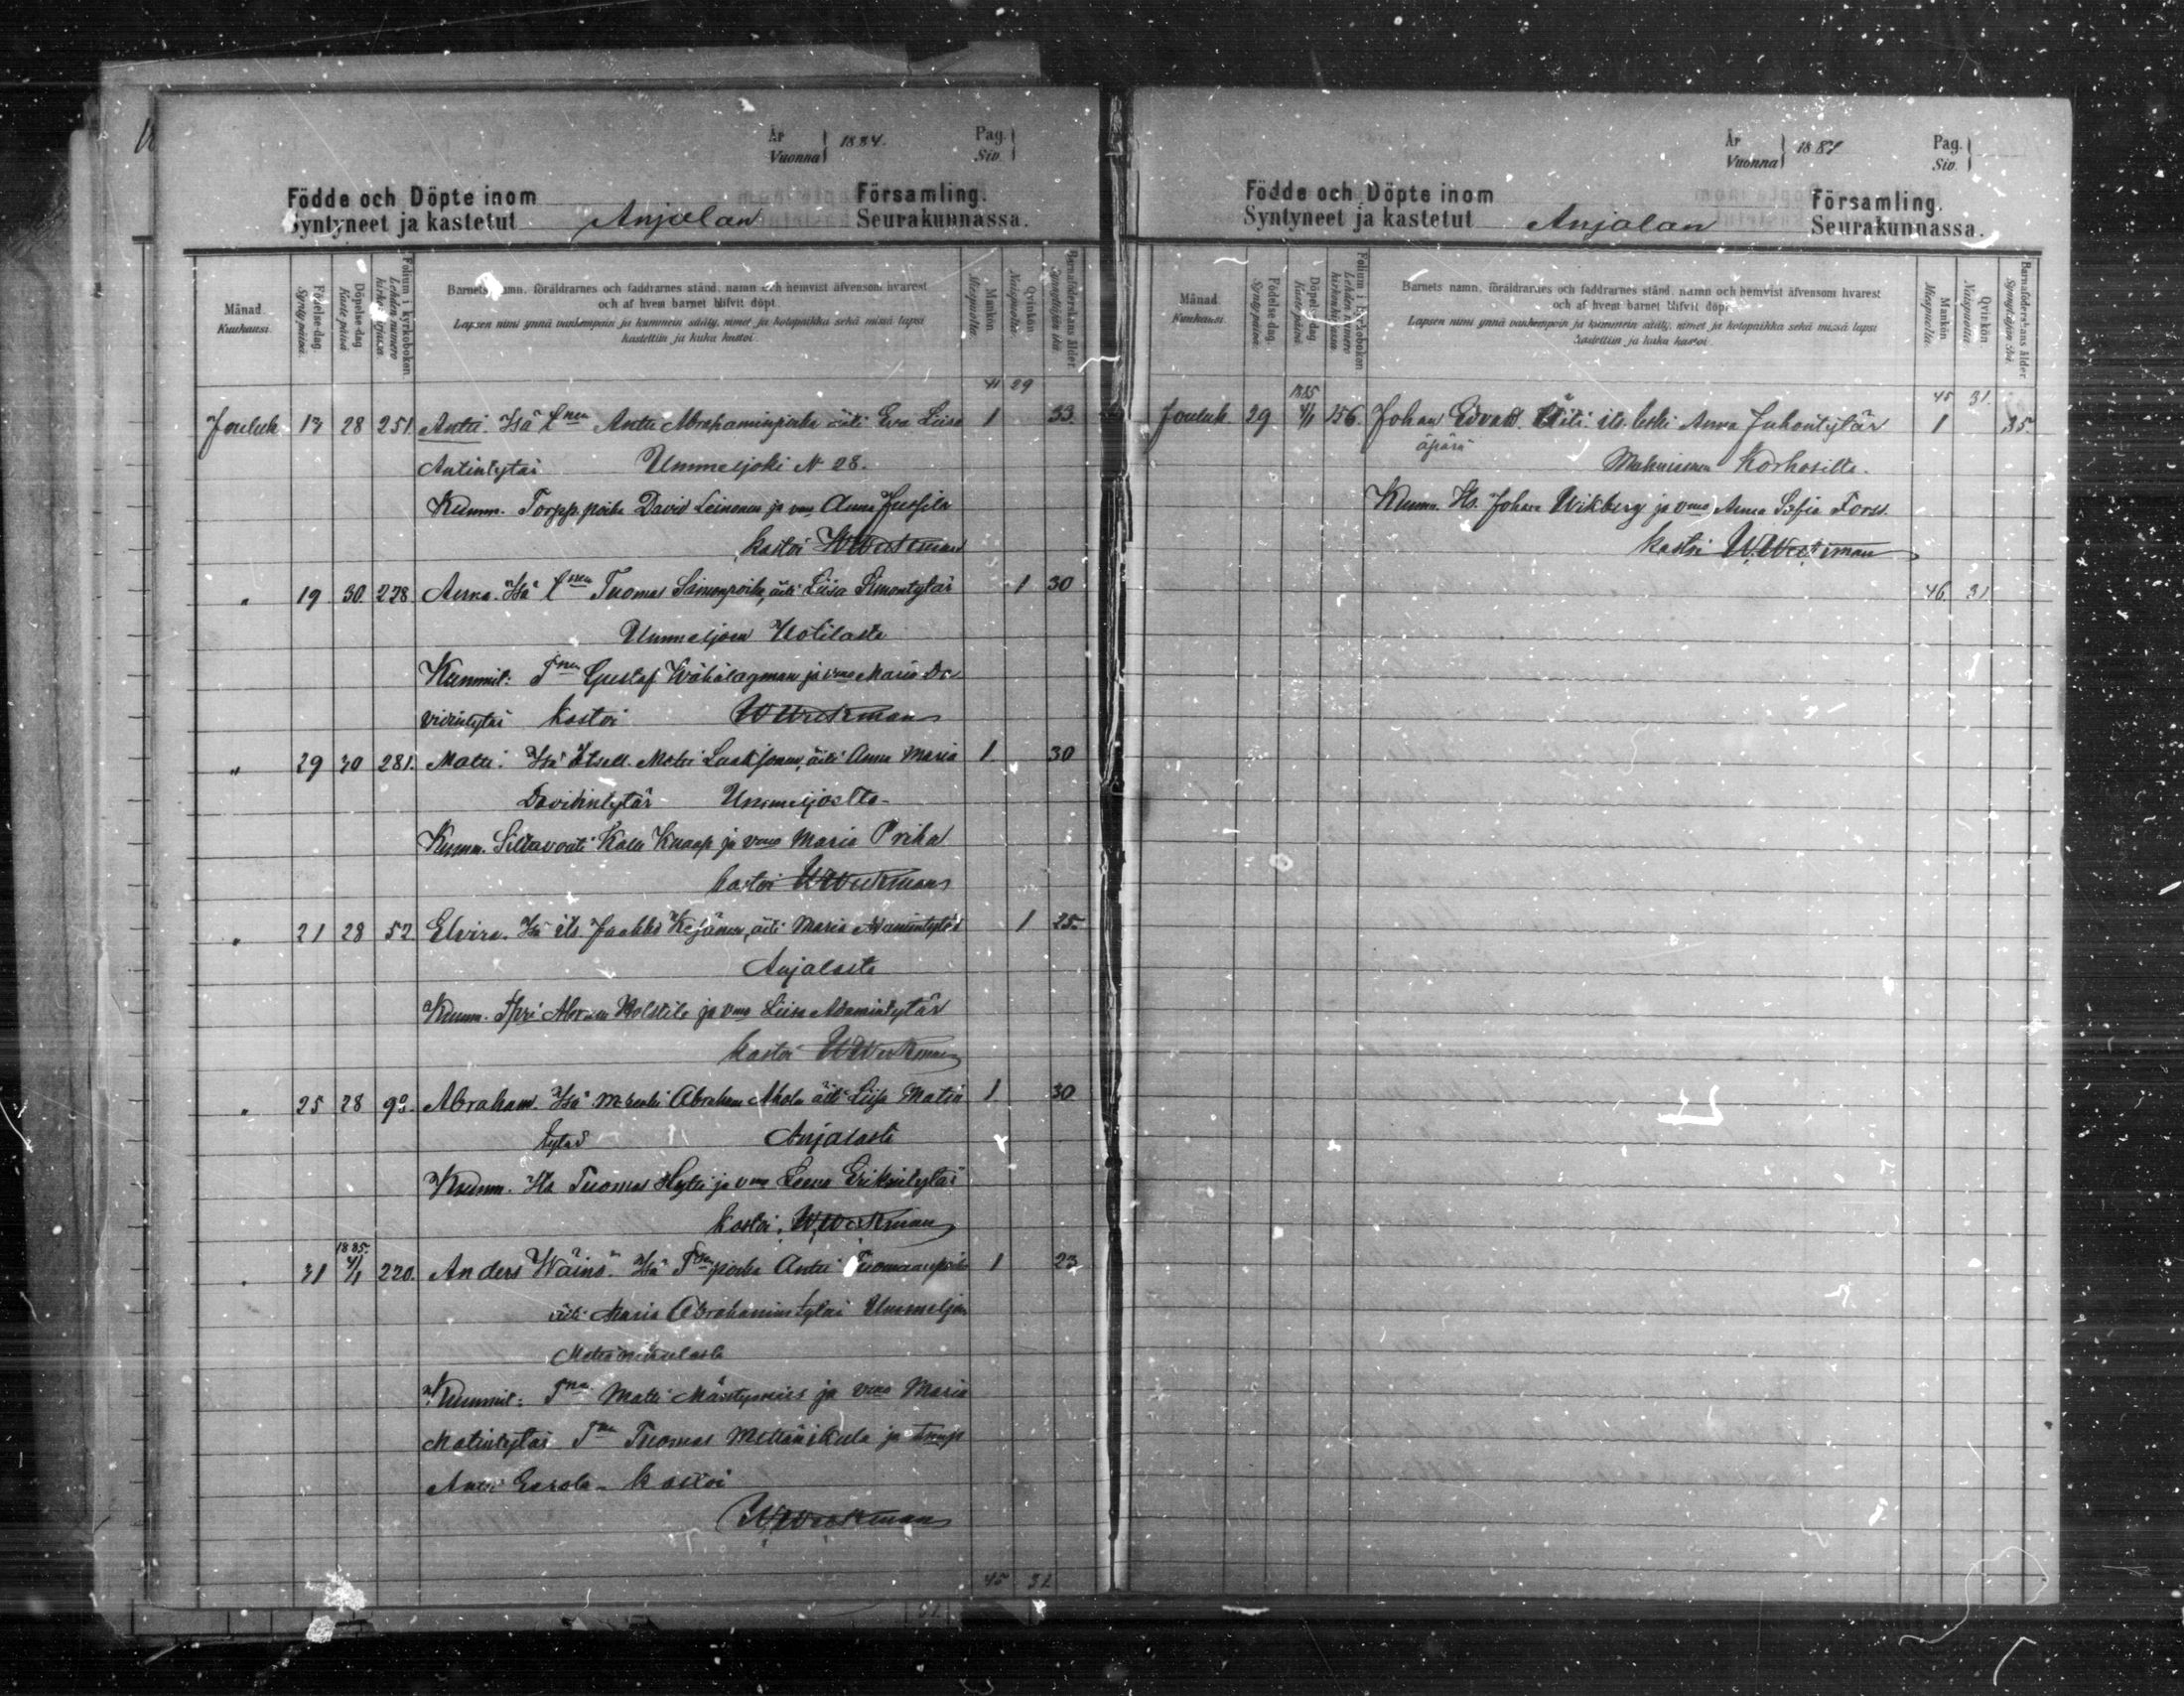 År
Vuonna 1884.
Pag.
Siv.
Födde och Döpte inom
Syntyneet ja kastetut Anjalan
Församling.
Seurakunnassa.
Månad.
Kuukausi.
Födelse-dag.
Syntypäivä.
Döpelse-dag
Kastepäivä
Folium i kyrkoboken.
Lehden numero
kirkonkirjassa
Barnets namn, föräldrarnes och faddrarnes stånd, namn och hemvist äfvensom hvarest
och af hvem barnet blifvit döpt.
Lapsen nimi ynnä vanhempain ja kummein sääty, nimet ja kotopaikka sekä missä lapsi
kastettiin ja kuka kastoi.
Mankön.
Miespuolia.
Qvinkön
Naispuolia
Barnaföderskans ålder
Synnyttäjän ikä
41 29
Jouluk. 13 28 251. Antti. Isä Antti Abrahaminpoika äiti Eva Liisa 1 33.
Antintytär Ummeljoki N 28.
Kumm. Torpp. poika David Leinonen ja vmo Anna Jussila
kastoi W Weckman
" 19 30 278 Anna. Isä Tuomas Simonpoika, äiti Liisa Simontytär 1 30
Ummeljoen Uotilasta
Kummit: Gustaf Wähälagman ja vmo Maria Da-
vidintytär kastoi W Weckman
" 29 30 281. Matti. Isä Itsell. Matti Laaksonen, äiti Anna Maria 1 30
Davidintytär Ummeljoelta
Kumm. Siltavouti Kalle Knaap ja vmo Maria Priha
kastoi W Weckman
" 21 28 52 Elvira. Isä its. Jaakko äiti Maria 1 25
Anjalasta
Kumm. Abram ja vmo Liisa Adamintytär
kastoi W Weckman
" 25 28 Abraham. Isä Abraham Ahola äiti Liisa Matin 1 30
tytär Anjalasta
Kumm. Its Tuomas Hytti ja vmo Leena Erikintytär
kastoi W. Weckman
1885.
" 31 4/1 220. Anders Wäinö. Isä poika Antti Tuomaanpoika 1 23
äiti Maria Abrahamintytär Ummeljoen
Kummit: Matti Mäntymies ja vmo Maria
Matintytär Tuomas ja
Antti Eerola kastoi
W Weckman
45 31
År
Vuonna 1884
Pag.
Siv.
Födde och Döpte inom
Syntyneet ja kastetut Anjalan
Församling.
Seurakunnassa.
Månad
Kuukausi.
Födelse-dag.
Syntypäivä.
Döpelse-dag.
Kastepäivä.
Folium i kyrkoboken
Lehden numero
kirkonkirjassa
Barnets namn, föräldrarnes och faddrarnes stånd, namn och hemvist äfvensom hvarest
och af hvem barnet blifvit döpt.
Lapsen nimi ynnä vanhempain ja kummein sääty, nimet ja kotopaikka sekä missä lapsi
kastettiin ja kuka kastoi.
Mankön
Miespuolia.
Qvinkön
Naispuolia.
Barnaföderskans ålder
Synnyttäjän ikä.
45 31.
1885
Jouluk. 29 4/1 156. Johan Edvard. Äiti its. leski Anna Juhontytär 1 35.
äpärä Korhosilta.
Kumm. Its. Johan Wikberg ja vmo Anna Sofia Forss.
kastoi W. Weckman
46. 31.